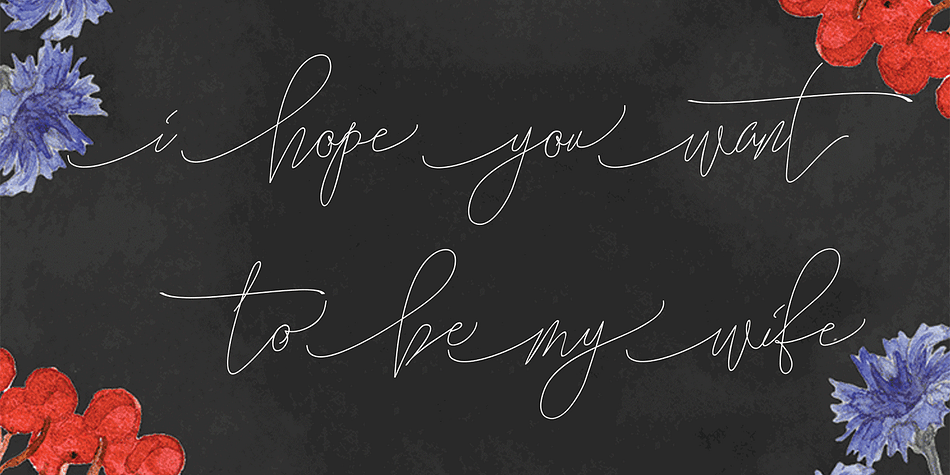 i hope you want
to be my wife